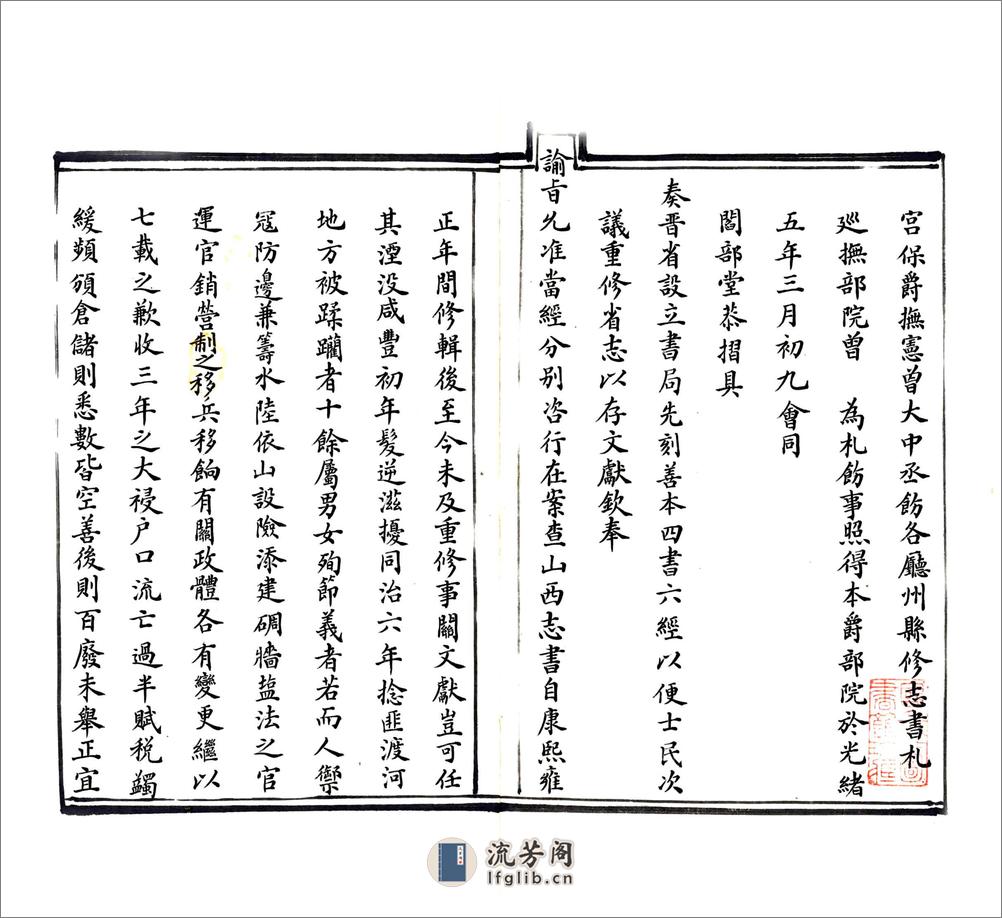 宮保爵撫憲曾大中丞飭各廳州縣修志書札
廵撫部院曾　為札飭事照得本爵部院於光緒
五年三月初九會同
閻部堂恭摺具
奏晋省設立書局先刻善本四書六經以便士民次
議重修省志以存文獻欽奉
諭㫖允准當經分别咨行在案查山西志書自康熙雍
正年間修輯後至今未及重修事關文獻豈可任
其湮没咸豐初年髮逆滋擾同治六年捻匪渡河
地方被蹂躪者十餘屬男女殉節義者若而人禦
冦防邊兼籌水陸依山設險添建碉牆塩法之官
運官銷營制之移兵移餉有關政體各有變更繼以
七載之歉收三年之大祲户口流亡過半賦税蠲
緩頻頒倉儲則悉數皆空善後則百廢未舉正宜
流芳阁
lfglib.cn